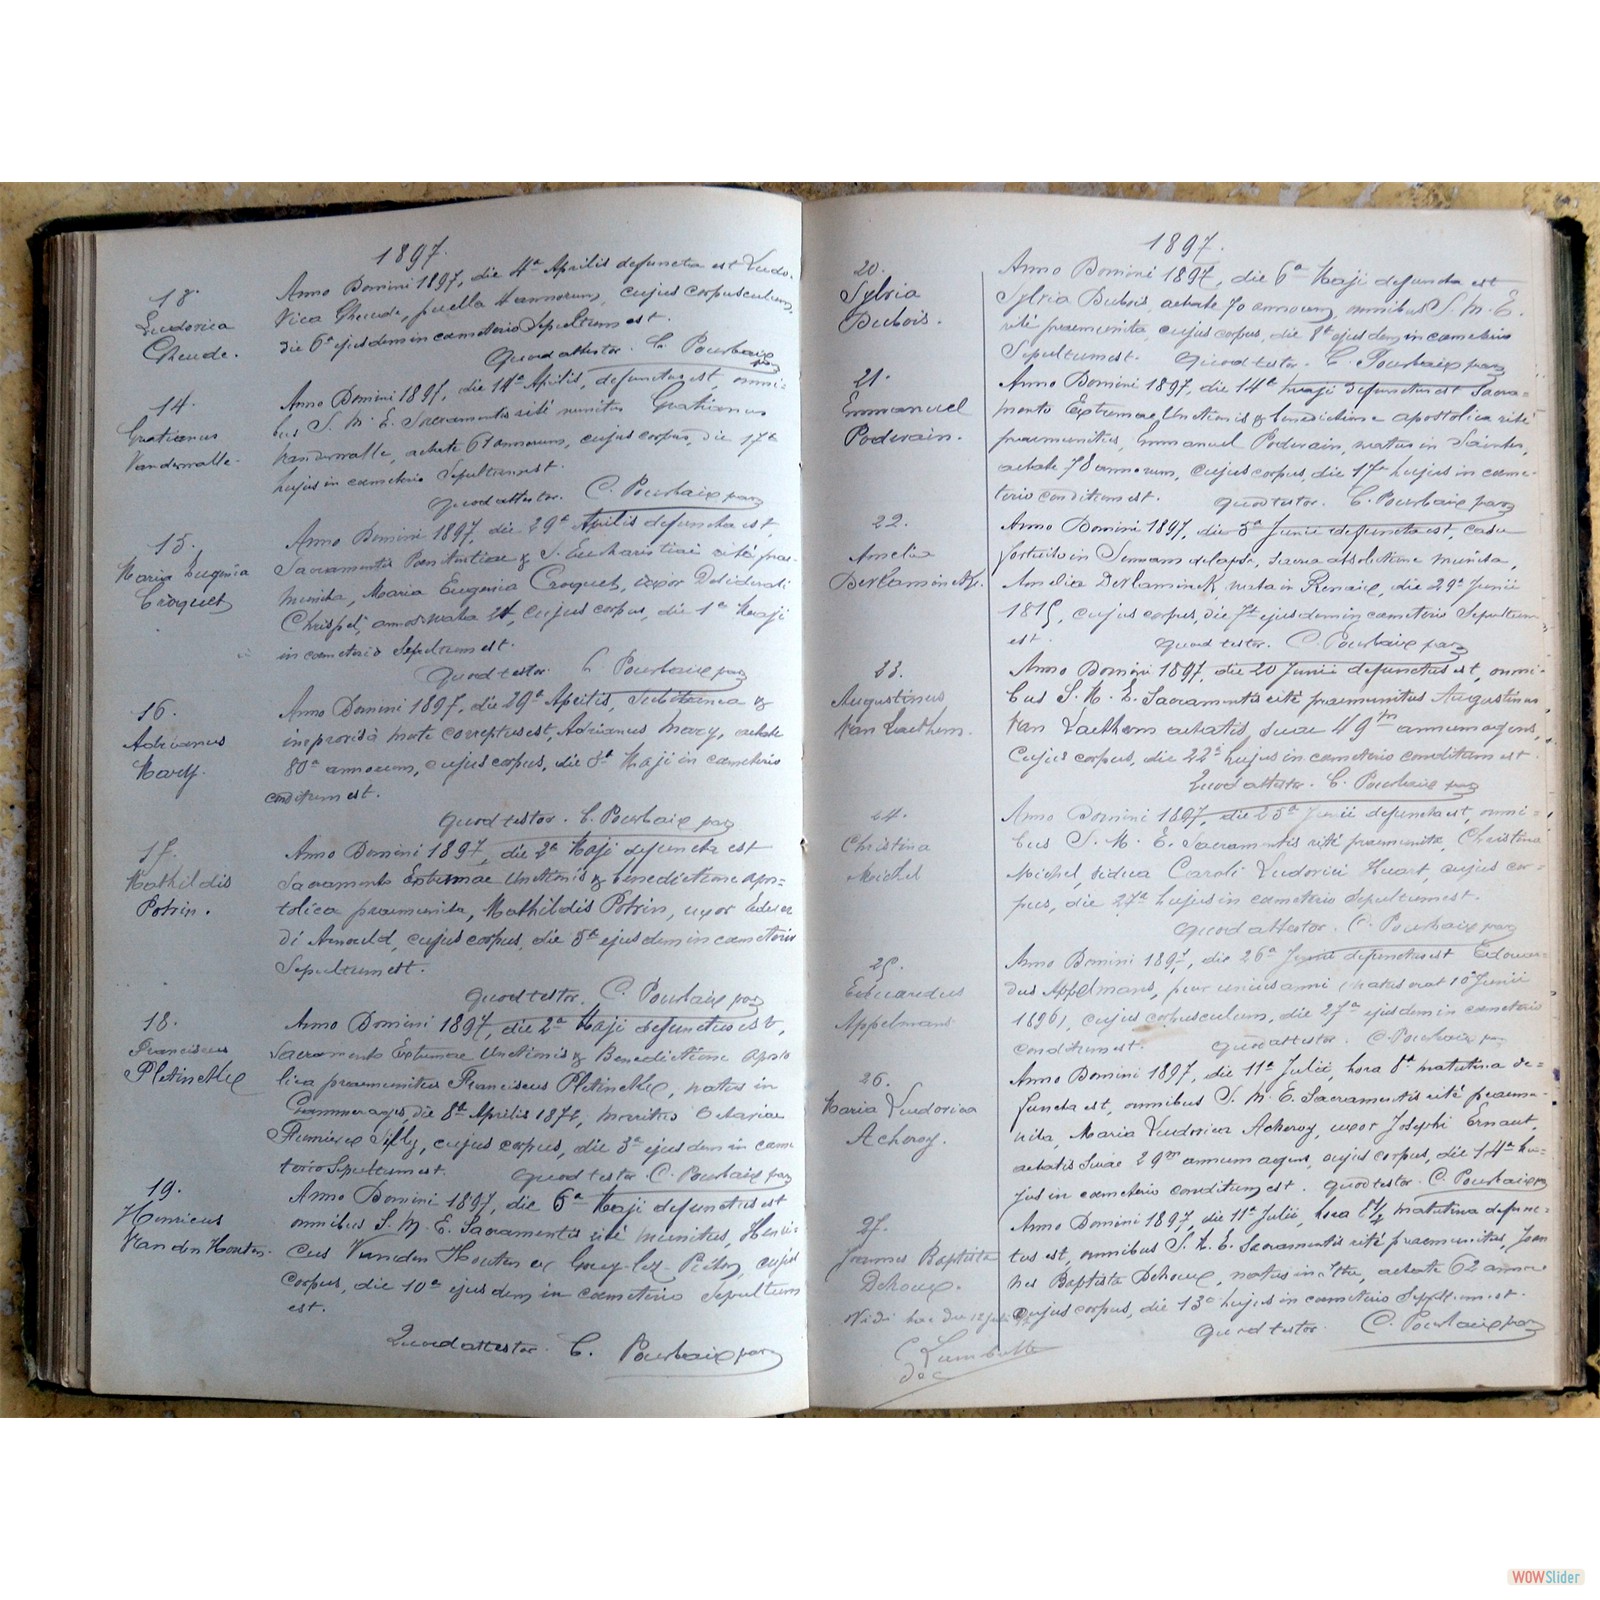 1897.
18.
Ludovica
Cheude.
Anno Domini 1897, die 4ª Aprilis defuncta est Ludo-
vica Cheude, puella annorum, cujus corpusculum,
die 6ª ejusdem in cameterio Sepultum est.
Quod attestor. C. Pourbaix
14.
Gratianus
Vanderwalle.
Anno Domini 1897, die 14ª Aprilis, defunctus est, omni-
bus S. M. E. Sacramentis rité munitus Gratianus
Vanderwalle, aetate 67 annorum, cujus corpus, die 17ª
hujus in cameterio Sepultum est.
Quod attestor. C. Pourbaix
15.
Maria Eugenia
Croquet
Anno Domini 1897, die 29ª Aprilis defuncta est,
Sacramentis Poenitentiae & S. Eucharistiae rité prae-
munita, Maria Eugenia Croquet, uxor Desiderati
Chrispel, cujus corpus, die 1ª Maji
in cameterio Sepultum est.
Quod testor. C. Pourbaix
16.
Adrianus
Mary.
Anno Domini 1897, die 29ª Aprilis, Subitanea &
improvisà morte correptus est, Adrianus Mary, aetate
80ª annorum, cujus corpus, die 3ª Maji in cameterio
conditum est.
Quod testor. C. Pourbaix
17.
Mathildis
Potrin.
Anno Domini 1897, die 2ª Maji defuncta est
Sacramento Extremae Unctionis & benedictione apos-
tolica praemunita, Mathildis Potrin, uxor
di Arnould, cujus corpus, die 5ª ejusdem in cameterio
Sepultum est.
Quod testor. C. Pourbaix
18.
Franciscus
Pletinckx
Anno Domini 1897, die 2ª Maji defunctus est,
Sacramento Extremae Unctionis & Benedictione Aposto
lica praemunitus Franciscus Pletinckx, natus in
die 8ª Aprilis 1872, maritus Octaviae
Silly, cujus corpus, die 3ª ejusdem in came
terio Sepultum est. Quod testor. C. Pourbaix
19.
Henricus
Van den Houten.
Anno Domini 1897, die 6ª Maji defunctus est
omnibus S. M. E. Sacramentis rité munitus, Henri-
cus Vanden Houten ex Gouy-lez-Piéton, cujus
corpus, die 10ª ejusdem in cameterio Sepultum
est.
Quod attestor. C. Pourbaix
1897.
20.
Sylvia
Dubois.
Anno Domini 1897, die 6ª Maji defuncta est
Sylvia Dubois, aetate 70 annorum, omnibus S. M. E.
rité praemunita, cujus corpus, die 8ª ejusdem in cameterio
Sepultum est. Quod testor. C. Pourbaix
21.
Emmanuel
Poderain.
Anno Domini 1897, die 14ª Maji defunctus est Sacra-
mento Extremae Unctionis & benedictione apostolica rité
praemunitus, Emmanuel Poderain, natus in Saintes,
aetate 78 annorum, cujus corpus, die 17ª hujus in came-
terio conditum est. Quod testor. C. Pourbaix
22.
Amelia
Anno Domini 1897, die 5ª Junii defuncta est, casu
fortuito in delapsa, sacra absolutione munita,
Amelia nata in Renaix, die 29ª Junii
1815, cujus corpus, die 7ª ejusdem in cameterio Sepultum
est. Quod testor. C. Pourbaix
23.
Augustinus
Van Laethem.
Anno Domini 1897, die 20 Junii defunctus est, omni-
bus S. M. E. Sacramentis rité praemunitus Augustinus
Van Laethem aetatis suae 49m annum agens,
cujus corpus, die 22ª hujus in cameterio conditum est.
Quod attestor. C. Pourbaix
24.
Christina
Michel
Anno Domini 1897, die 25ª Junii defuncta est, omni-
bus S. M. E. Sacramentis rité praemunita, Christina
Michel, vidua Caroli Ludovici Huart, cujus cor-
pus, die 27ª hujus in cameterio Sepultum est.
Quod attestor. C. Pourbaix
25.
Eduardus
Appelmans
Anno Domini 1897, die 26ª Junii defunctus est Edouar-
dus Appelmans, puer unius anni (natus erat 10ª Junii
1896), cujus corpusculum, die 27ª ejusdem in cameterio
conditum est. Quod attestor. C. Pourbaix
26.
Maria Ludovica
Acheroy.
Anno Domini 1897, die 11ª Julii, hora 8ª matutina de-
functa est, omnibus S. M. E. Sacramentis rité praemu-
nita, Maria Ludovica Acheroy, uxor Josephi Ernaut,
aetatis suae 29m annum agens, cujus corpus, die 14ª hu-
jus in cameterio conditum est. Quod testor. C. Pourbaix
27.
Joannes Baptista
Dehoux.
Anno Domini 1897, die 11ª Julii, hora matutina defunc-
tus est, omnibus S. M. E. Sacramentis rité praemunitus, Joan
nes Baptista Dehoux, natus in Ittre, aetate 62 annor
cujus corpus, die 13ª hujus in cameterio Sepultum est.
Quod testor. C. Pourbaix
Vidi hac die 12
WOWSlider